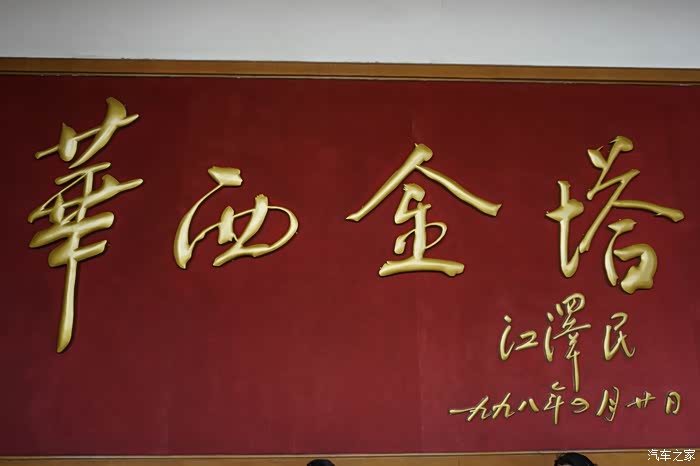 華西金塔
江澤民
一九九八年四月廿日
汽车之家